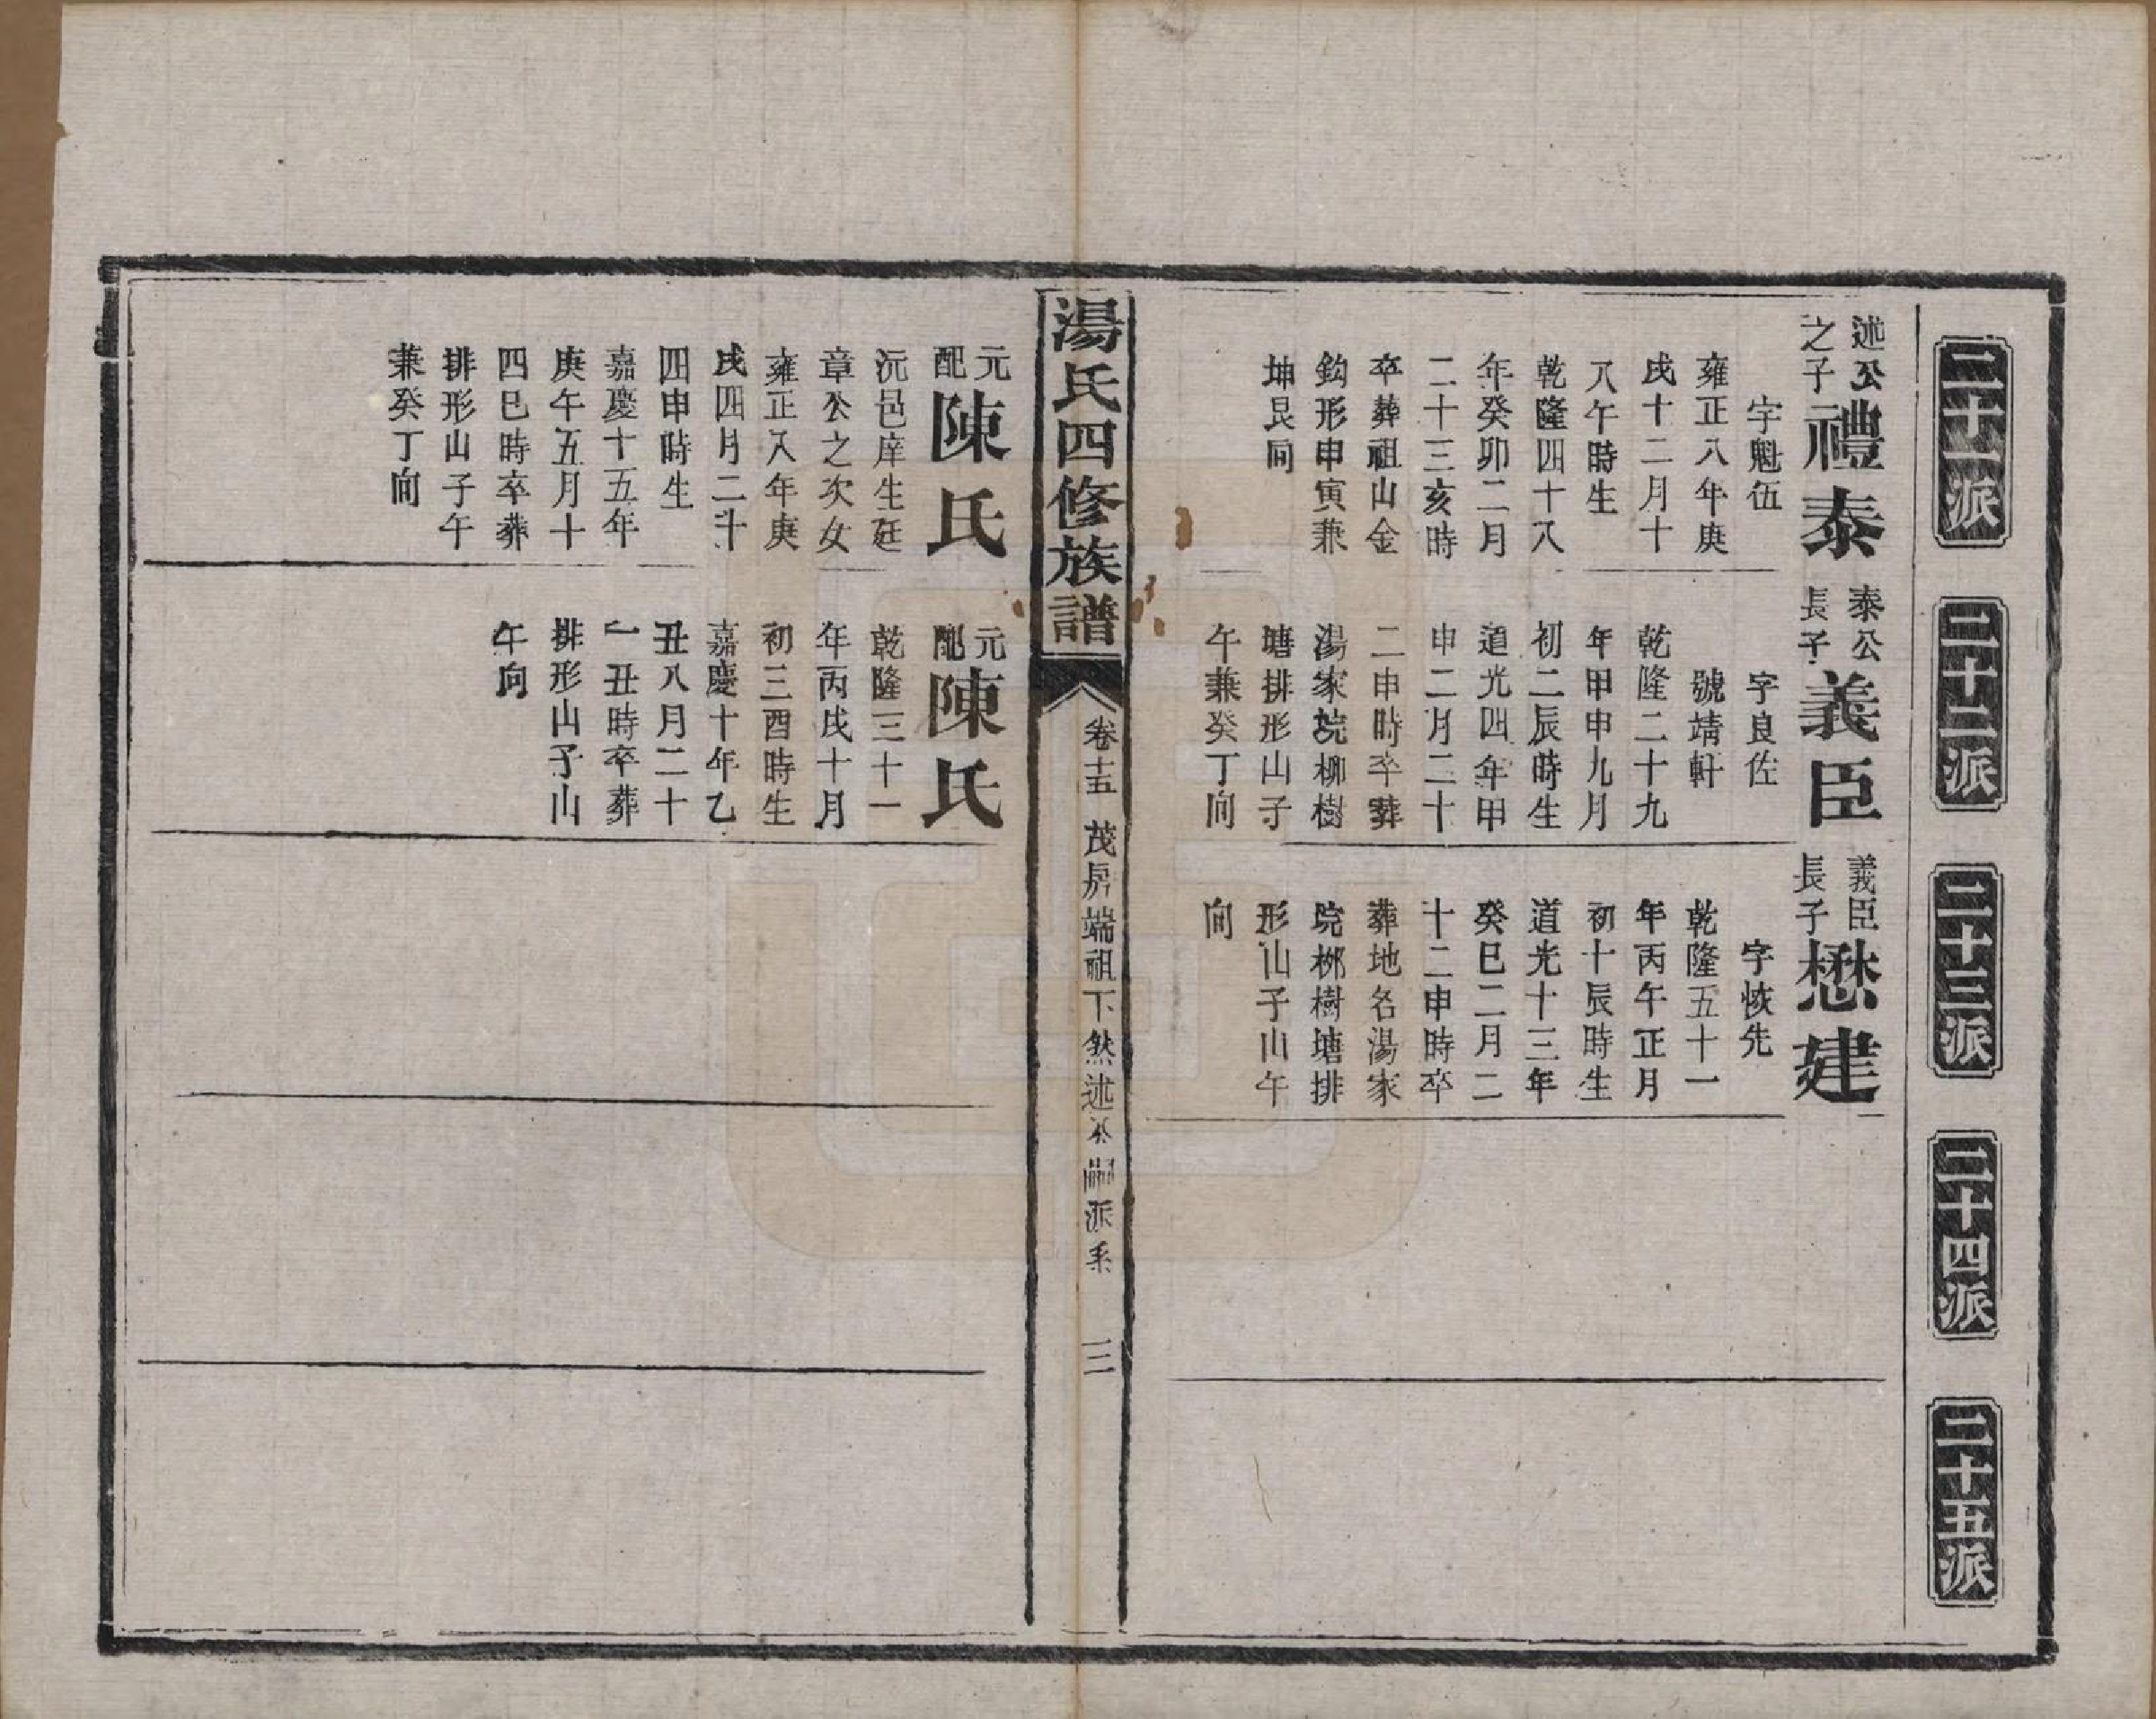 二十一派
二十二派
二十三派
二十四派
二十五派
述公
之子
禮泰
字魁伍
雍正八年庚
戌十二月十
八午時生
乾隆四十八
年癸卯二月
二十三亥時
卒葬祖山金
鈎形申寅兼
坤艮向
泰公
長子
義臣
字良佐
號靖軒
乾隆二十九
年甲申九月
初二辰時生
道光四年甲
申二月二十
二申時卒葬
湯家垸柳樹
塘排形山子
午兼癸丁向
義臣
長子
懋建
字恢先
乾隆五十一
年丙午正月
初十辰時生
道光十三年
癸巳二月二
十二申時卒
葬地名湯家
垸栁樹塘排
形山子山午
向
湯氏四修族譜
卷十五
茂房端祖下然述公嗣派系
三
元
配
陳氏
沅邑庠生廷
章公之次女
雍正八年庚
戌四月二十
四申時生
嘉慶十五年
庚午五月十
四巳時卒葬
排形山子午
兼癸丁向
元
配
陳氏
乾隆三十一
年丙戌十月
初三酉時生
嘉慶十年乙
丑八月二十
一丑時卒葬
排形山子山
午向